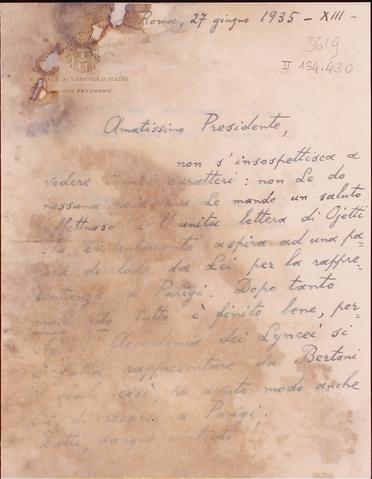 Roma, 27 giugno 1935 - XIII -
3619
II 134.430
REALE ACCADEMIA D'ITALIA
IL VICE PRESIDENTE
Amatissimo Presidente,
non s'insospettisca a
vedere i miei caratteri: non Le do
nessuna noia, ma Le mando un saluto
affettuoso e l'unita lettera di Ojetti
che evidentemente aspira ad una pa=
rola di lode da Lei per la rappre=
sentanza a Parigi. Dopo tanto
tutto è finito bene, per=
Accademia dei Lyncei si
rappresentare da Bertoni
così ha avuto modo anche
di recarsi a Parigi.
Tutti, dunque, contenti!